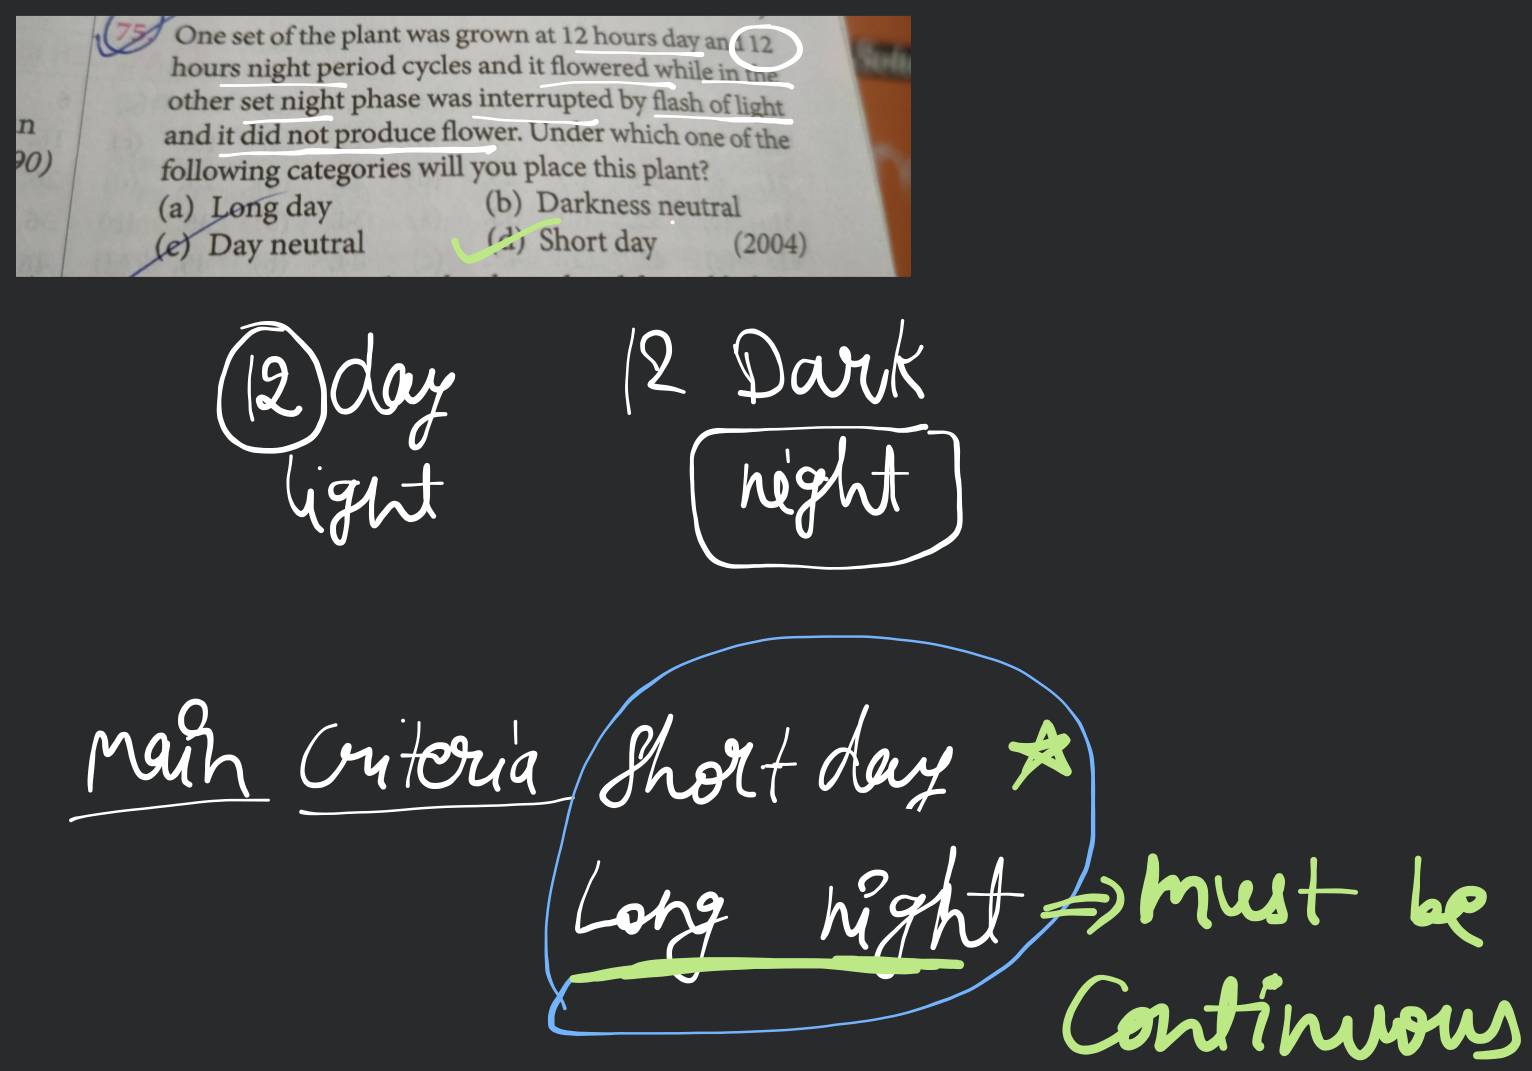 75. One set of the plant was grown at 12 hours day and 12
hours night period cycles and it flowered while in the
other set night phase was interrupted by flash of light
and it did not produce flower. Under which one of the
following categories will you place this plant?
(a) Long day (b) Darkness neutral
(c) Day neutral (d) Short day (2004)
n
90)
12 day 12 Dark
light night
Main Criteria Short day
Long night ⇒ must be
Continuous